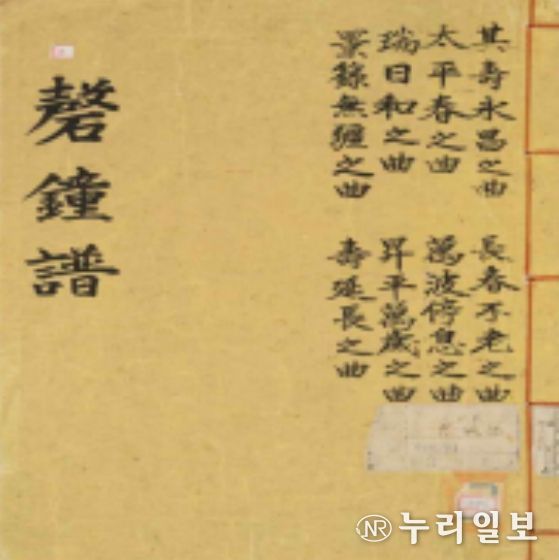 其壽永昌之曲
長春不老之曲
太平春之曲
萬波停息之曲
瑞日和之曲
昇平萬歲之曲
景籙無疆之曲
壽延長之曲
磬鐘譜
NR 누리일보